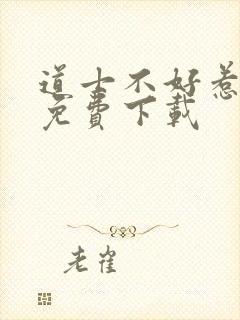 道士不好惹
免費下載
老雀